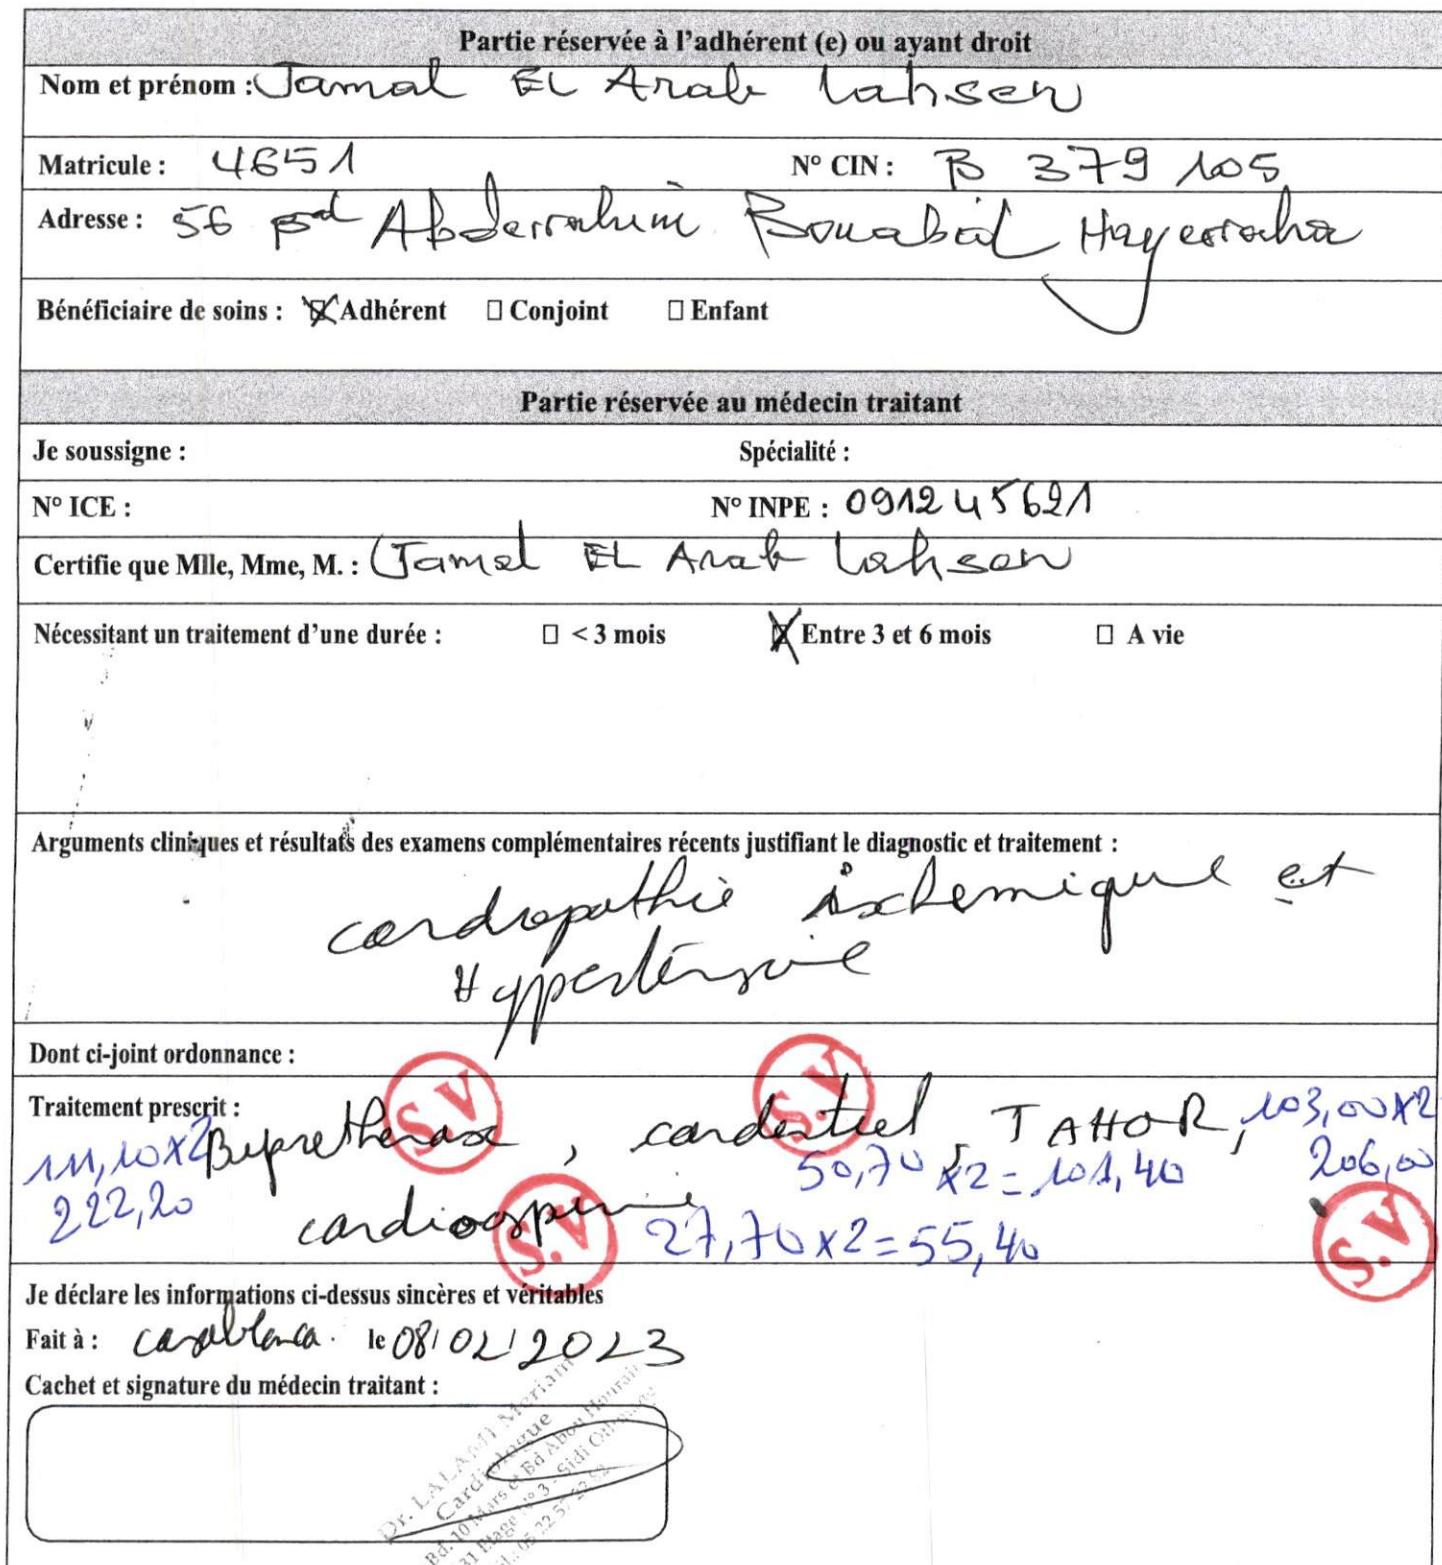 Partie réservée à l'adhérent (e) ou ayant droit
Nom et prénom : Jamal EL Arab Lahsen
Matricule : 4651 N° CIN : B 379 105
Adresse : 56 Bd Abderrahim Bouabid Hay erraha
Bénéficiaire de soins : ☒ Adhérent ☐ Conjoint ☐ Enfant
Partie réservée au médecin traitant
Je soussigne : Spécialité :
N° ICE : N° INPE : 091245621
Certifie que Mlle, Mme, M. : Jamal EL Arab Lahsen
Nécessitant un traitement d'une durée : ☐ < 3 mois ☒ Entre 3 et 6 mois ☐ A vie
Arguments cliniques et résultats des examens complémentaires récents justifiant le diagnostic et traitement :
cardiopathie ischemique et
Hypertensive
Dont ci-joint ordonnance :
S.V S.V
Traitement prescrit :
Bipretherax, cardestiel, TAHOR, 103,00 x2
111,10 x2 50,70 x2 = 101,40 206,00
222,20 cardioaspirine 27,70 x2 = 55,40
S.V S.V
Je déclare les informations ci-dessus sincères et véritables
Fait à : casablanca. le 08/02/2023
Cachet et signature du médecin traitant :
Dr. LALAMI Meriam
Cardiologue
Bd. 10 Mars et Bd Abou Hourair
31 Etage N° 3 - Sidi Othmane
05 22 57 22 52